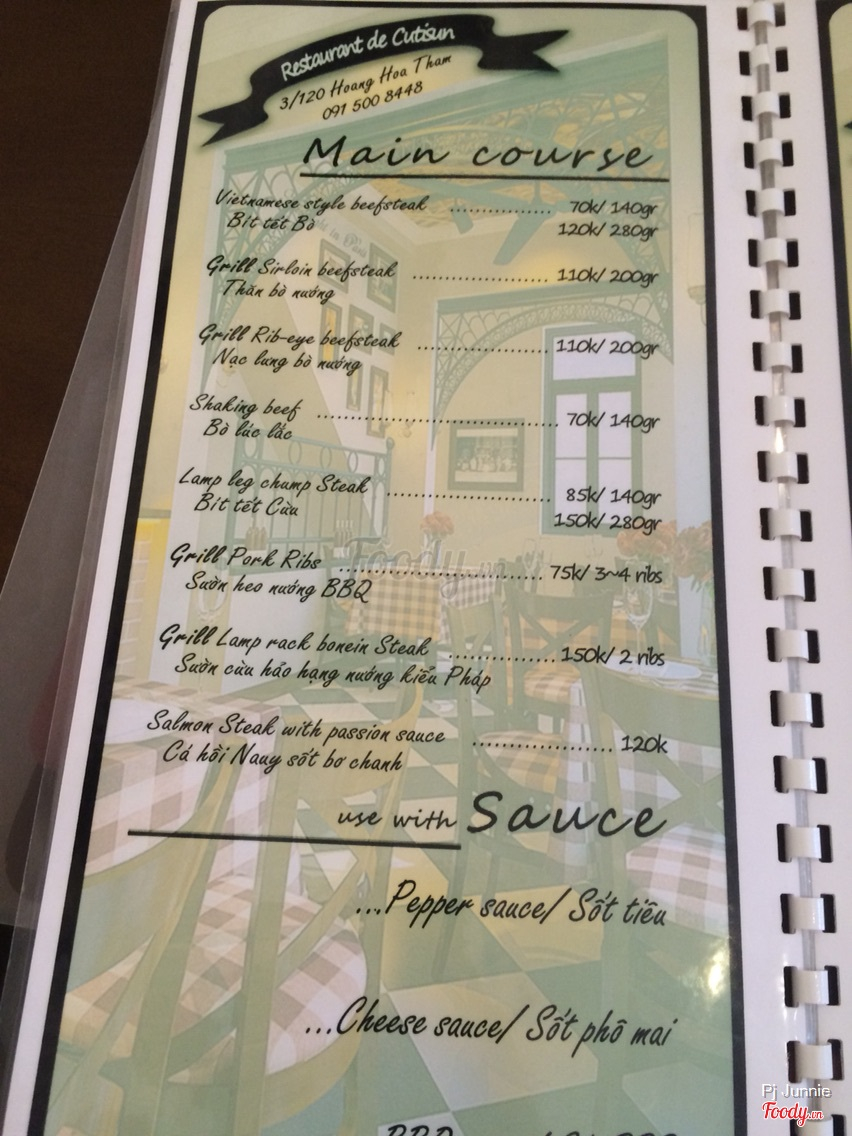 Restaurant de Cutisun
3/120 Hoang Hoa Tham
091 500 8448
Main course
Vietnamese style beefsteak ............... 70k/ 140gr
Bít tết Bò 120k/ 280gr
Grill Sirloin beefsteak .................... 110k/ 200gr
Thăn bò nướng
Grill Rib-eye beefsteak .................... 110k/ 200gr
Nạc lưng bò nướng
Shaking beef .................................... 70k/ 140gr
Bò lúc lắc
Lamp leg chump Steak ........................ 85k/ 140gr
Bít tết Cừu 150k/ 280gr
Grill Pork Ribs .............................. 75k/ 3~4 ribs
Sườn heo nướng BBQ
Grill Lamp rack bonein Steak ................ 150k/ 2 ribs
Sườn cừu hảo hạng nướng kiểu Pháp
Salmon Steak with passion sauce ..................... 120k
Cá hồi Nauy sốt bơ chanh
use with Sauce
...Pepper sauce/ Sốt tiêu
...Cheese sauce/ Sốt phô mai
Foody.vn
Pj Junnie
Foody.vn